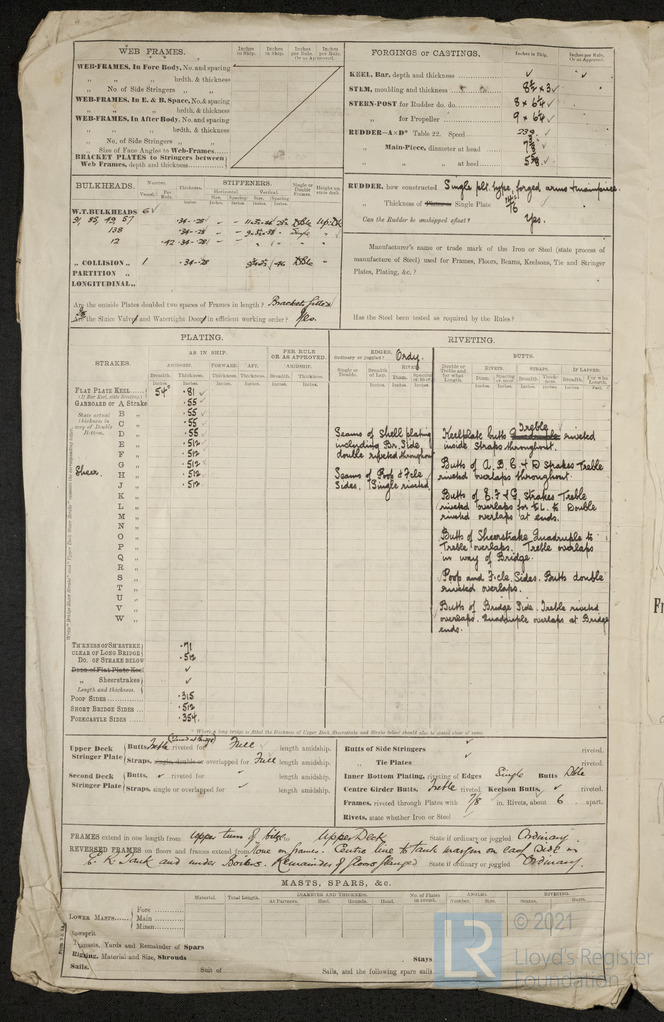 WEB FRAMES.
Inches in Ship. Inches in Ship. Inches per Rule. Or as Approved. Inches per Rule. Or as Approved.
WEB-FRAMES, In Fore Body, No. and spacing
„ „ brdth. & thickness
„ No. of Side Stringers „ „
WEB-FRAMES, In E. & B. Space, No. & spacing
„ „ brdth. & thickness
WEB-FRAMES, In After Body, No. and spacing
„ „ brdth. & thickness
„ No. of Side Stringers „ „
„ Size of Face Angles to Web-Frames
BRACKET PLATES to Stringers between
Web Frames, depth and thickness
FORGINGS or CASTINGS.
Inches in Ship. Inches per Rule. Or as Approved.
KEEL, Bar, depth and thickness ✓ ✓
STEM, moulding and thickness 8½ × 3 ✓
STERN-POST for Rudder do. do. 8 × 6¼ ✓
„ for Propeller 9 × 6¼ ✓
RUDDER—A×D* Table 22. Speed
„ Main-Piece, diameter at head
„ „ at heel
RUDDER, how constructed Single plt. type, forged arms & mainpiece.
„ Thickness of Single Plate
Can the Rudder be unshipped afloat? Yes.
Manufacturer's name or trade mark of the Iron or Steel (state process of
manufacture of Steel) used for Frames, Floors, Beams, Keelsons, Tie and Stringer
Plates, Plating, &c.?
Has the Steel been tested as required by the Rules?
BULKHEADS.
STIFFENERS.
Number. Thickness. Horizontal Vertical. Single or Double Frames. Height up, state deck.
Vessel. Per Rule. Inches. Size. Spacing. Size. Spacing.
W.T. BULKHEADS 6 ✓
138
12 .42 .34-.28
„ COLLISION „ 1 .34-.28
PARTITION „
LONGITUDINAL „
Are the outside Plates doubled two spaces of Frames in length? Brackets fitted
Are the Sluice Valves and Watertight Doors in efficient working order? Yes.
PLATING.
RIVETING.
STRAKES.
AS IN SHIP.
PER RULE OR AS APPROVED.
EDGES, Ordinary or joggled? Ordy.
BUTTS.
AMIDSHIP. FORWARD. AFT. AMIDSHIP.
Breadth. Thickness. Thickness. Thickness. Breadth. Thickness.
Single or Double. Breadth of Lap. RIVETS. Diam.
Double or Treble and for what Length. RIVETS. STRAPS. IF LAPPED.
FLAT PLATE KEEL 54" .81 ✓
(If Bar Keel, state Riveting)
GARBOARD or A Strake .55 ✓
State actual thickness in way of Double Bottom.
B „ .55 ✓
C „ .55 ✓
D „ .55 ✓
E „ .512
F „ .512
G „ .512
Sheer. H „ .512
J „ .512
K „
L „
M „
N „
O „
P „
Q „
R „
S „
T „
U „
V „
W „
Seams of Shell plating
including Br. Side,
double riveted throughout
Seams of Poop & Fcle
Sides. Single riveted
Treble
Keelplate butts riveted
inside straps throughout.
Butts of A, B, C & D Strakes Treble
riveted overlaps throughout.
Butts of E, F & G Strakes Treble
riveted overlaps for ½ L. to Double
riveted overlaps at ends.
Butts of Sheerstrake Quadruple to
Treble overlaps. Treble overlaps
in way of Bridge.
Poop and F'cle. Sides. Butts double
riveted overlaps.
Butts of Bridge Side. Treble riveted
overlaps. Quadruple overlaps at Bridge
ends.
THICKNESS OF SH'RSTRKE .71
CLEAR OF LONG BRIDGE
DO. OF STRAKE BELOW .512
✓
„ Sheerstrakes ✓
Length and thickness.
POOP SIDES .315
SHORT BRIDGE SIDES .512
FORECASTLE SIDES .354
* Where a long bridge is fitted the thickness of Upper Deck Sheerstrake and Strake below should also be stated clear of same.
Upper Deck Stringer Plate
Butts, Treble riveted for Full length amidship.
Straps, single, double or overlapped for Full length amidship.
Second Deck Stringer Plate
Butts, ✓ riveted for ✓ length amidship.
Straps, single or overlapped for ✓ length amidship.
Butts of Side Stringers ✓ riveted.
„ Tie Plates ✓ riveted.
Inner Bottom Plating, riveting of Edges Single Butts Dble
Centre Girder Butts, Treble riveted. Keelson Butts, ✓ riveted.
Frames, riveted through Plates with 7/8 in. Rivets, about 6 apart.
Rivets, state whether Iron or Steel
FRAMES extend in one length from Upper turn of bilge to Upper Deck State if ordinary or joggled Ordinary.
REVERSED FRAMES on floors and frames extend from None on frames. Centre line to tank margin on each side in
E. R. Tank and under Boilers. Remainder of floors flanged State if ordinary or joggled Ordinary.
MASTS, SPARS, &c.
Material. Total Length. DIAMETER AND THICKNESS. No. of Plates in round. ANGLES. RIVETING.
At Partners. Heel. Hounds. Head. Number. Size. Seams. Butts.
LOWER MASTS
Fore
Main
Mizen
Bowsprit
Topmasts, Yards and Remainder of Spars
Rigging, Material and Size, Shrouds Stays
Sails. Suit of Sails, and the following spare sails
LR
© 2021
Lloyd's Register
Foundation